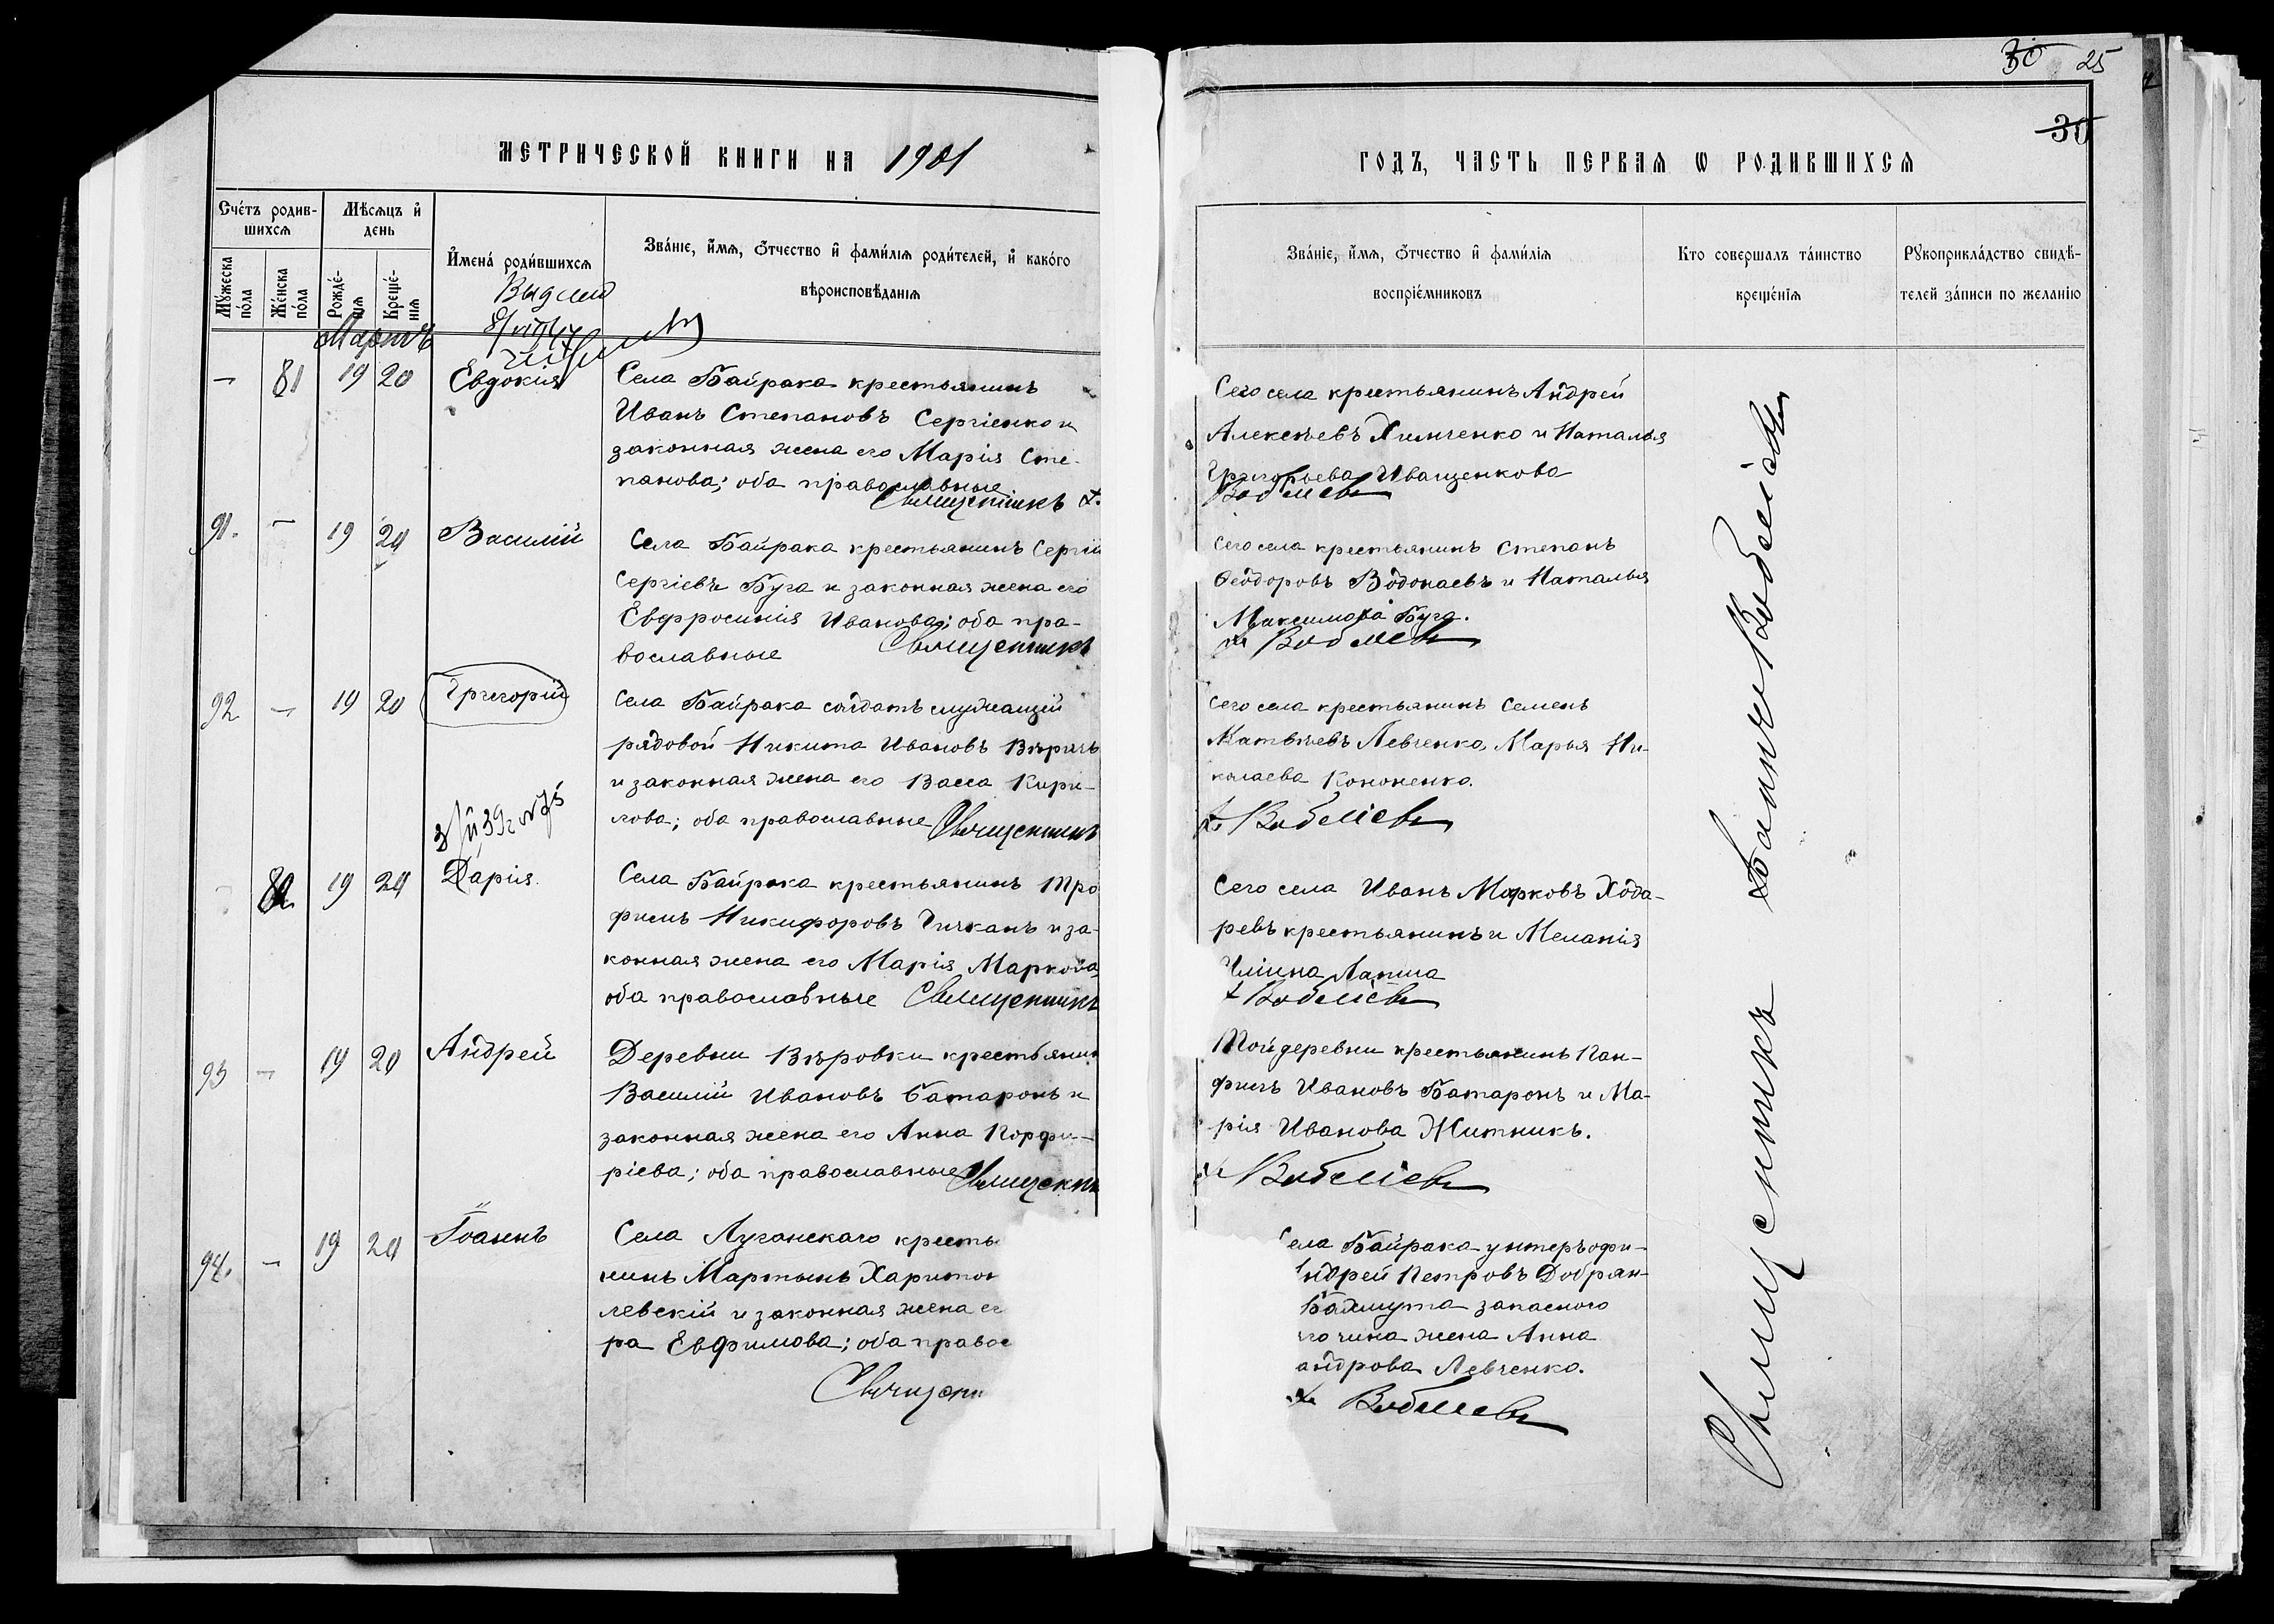 30 25
30
МЕТРИЧЕСКОЙ КНИГИ НА 1901
ГОДЪ, ЧАСТЬ ПЕРВАЯ Ѡ РОДИВШИХСЯ
Сче́тъ родив-
шихся
Мѣсяцъ и҆
день
Му́жеска
по́ла
Же́нска
по́ла
Рожде́-
нія
Креще́-
нія
И҆мена́ роди́вшихся
Зва́нїе, и҆́мя, ѻ҆́тчество и҆ фами́лїя роди́телей, и҆ како́гѡ
вѣроисповѣ́данїя
Зва́нїе, и҆́мя, ѻ҆́тчество и҆ фами́лїя
воспрїе́мниковъ
Кто совершалъ та́инство
креще́нїя
Рꙋкоприкла́дство свидѣ́-
телей за́писи по жела́нїю
Мартъ
— 81 19 20 Евдокія
Села Байрака крестьянинъ
Иванъ Степановъ Сергіенко и
законная жена его Марія Сте-
панова; оба православные
Священникъ
Сего села крестьянинъ Андрей
Алексѣевъ Химченко и Наталья
Григорьева Иващенкова
91. — 19 20 Василій
Села Байрака крестьянинъ Сергій
Сергіевъ Буга и законная жена его
Евфросинія Иванова; оба пра-
вославные Священникъ
Сего села крестьянинъ Степанъ
Ѳеодоровъ Водонаевъ и Наталья
Максимова Буга.
92 — 19 20 Григорій
Села Байрака солдатъ служащій
рядовой Никита Ивановъ
и законная жена его Васса Кири-
лова; оба православные Священникъ
Сего села крестьянинъ Семенъ
Матвѣевъ Левченко, Марья Ни-
колаева Кононенко.
82 19 20 Дарія.
Села Байрака крестьянинъ Тро
фимъ Никифоровъ Чичканъ и за-
конная жена его Марія Маркова,
оба православные Священникъ
Сего села Иванъ Марковъ Хода-
ревъ крестьянинъ и Меланія
Лапина
93 — 19 20 Андрей
Деревни Вѣровки крестьянин
Василій Ивановъ Батаронъ и
законная жена его Анна Порфи-
ріева; оба православные
Той деревни крестьянинъ Пан-
филъ Ивановъ Батаронъ и Ма-
рія Иванова Житникъ.
94. — 19 20 Іоаннъ
Села Луганскаго кресть
нинъ Мартынъ Харитон
левскій и законная жена ег
ра Евфимова; оба правос
Священн
села Байрака унтеръ офи-
ндрей Петровъ Добрян-
Бахмута запаснаго
го чина жена Анна
андрова Левченко.
Священникъ